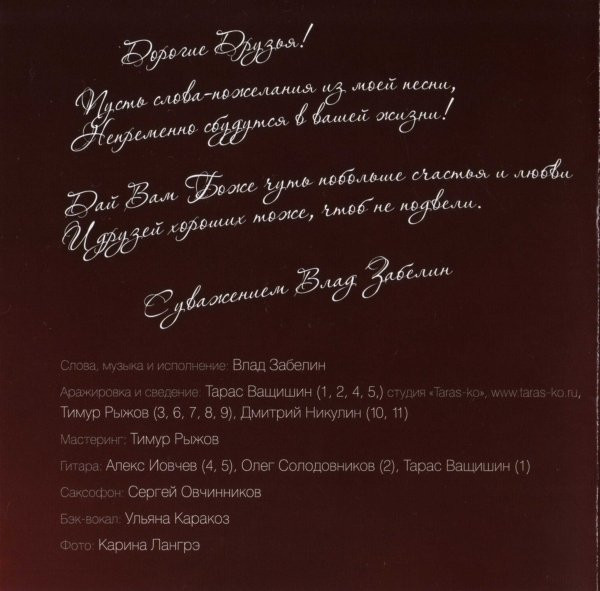 Дорогие Друзья!
Пусть слова-пожелания из моей песни,
Непременно сбудутся в вашей жизни!
Дай Вам Боже чуть побольше счастья и любви
И друзей хороших тоже, чтоб не подвели.
С уважением Влад Забелин
Слова, музыка и исполнение: Влад Забелин
Аражировка и сведение: Тарас Ващишин (1, 2, 4, 5,) студия «Taras-ko», www.taras-ko.ru,
Тимур Рыжов (3, 6, 7, 8, 9), Дмитрий Никулин (10, 11)
Мастеринг: Тимур Рыжов
Гитара: Алекс Иовчев (4, 5), Олег Солодовников (2), Тарас Ващишин (1)
Саксофон: Сергей Овчинников
Бэк-вокал: Ульяна Каракоз
Фото: Карина Лангрэ